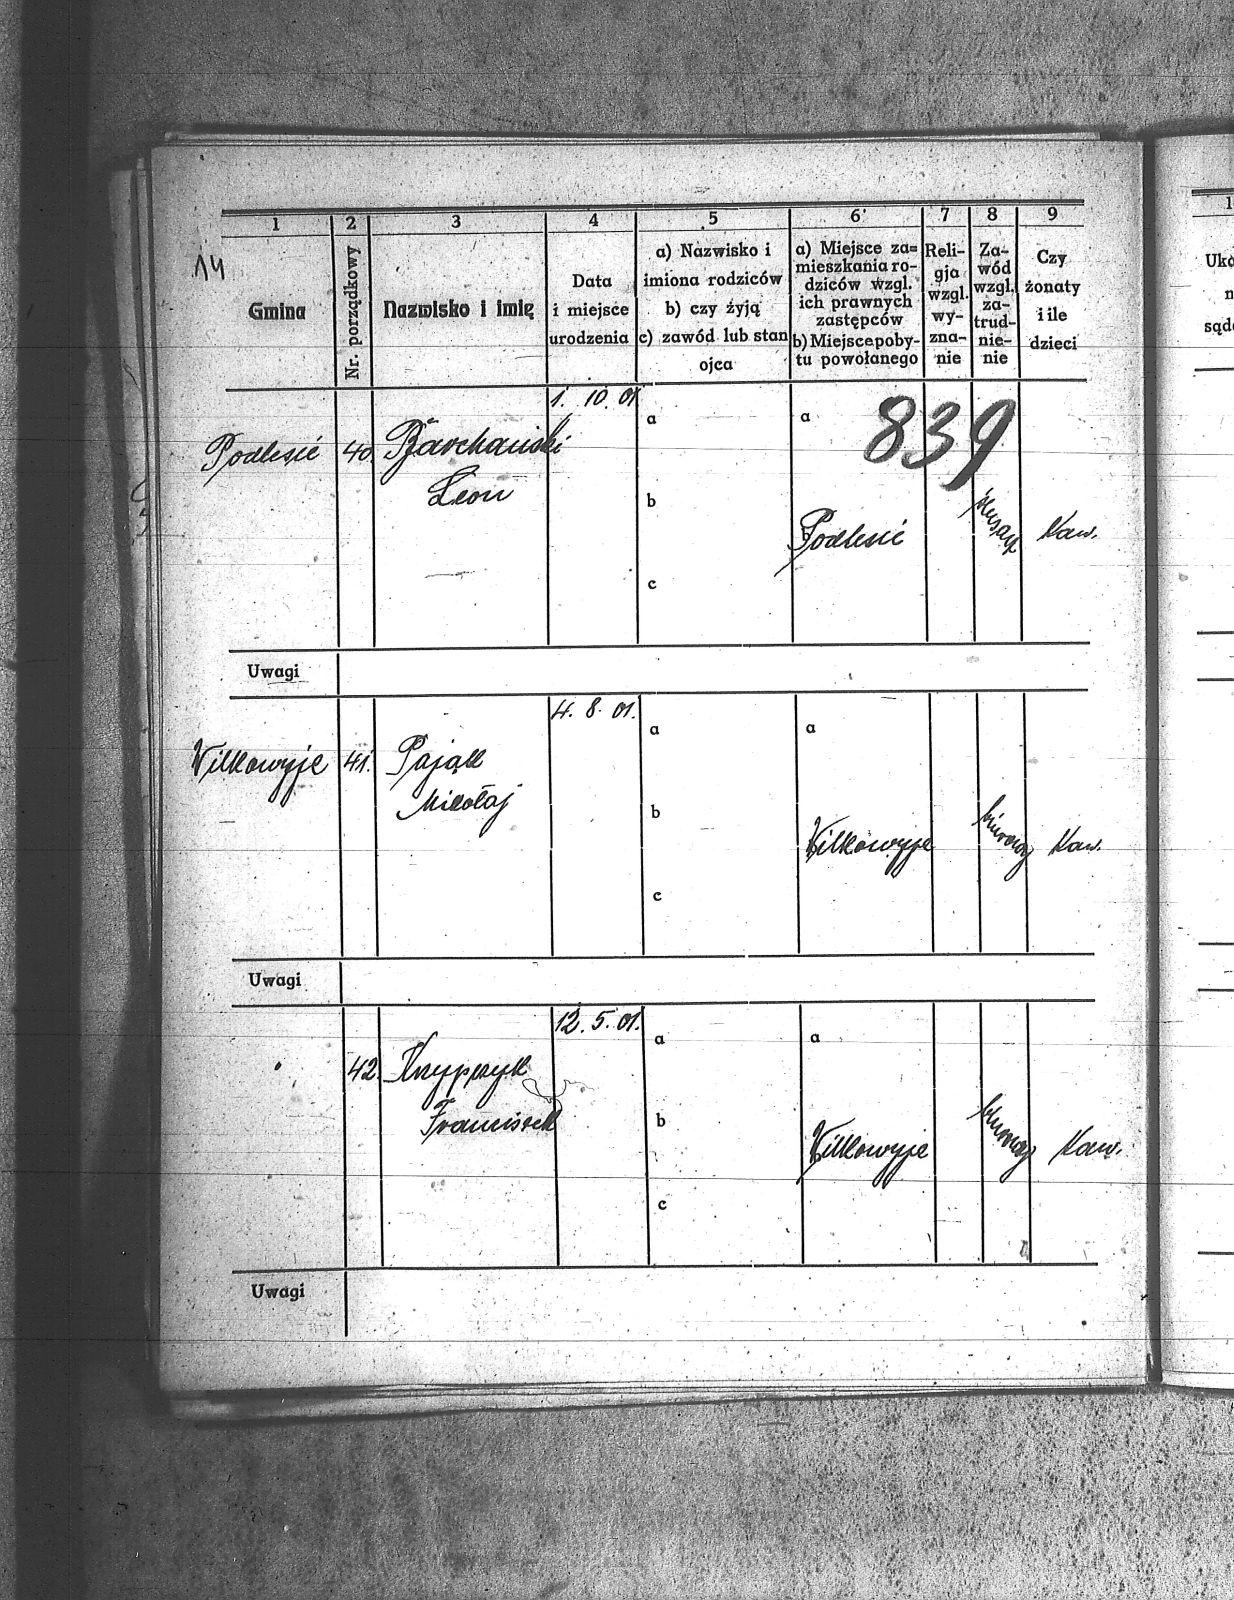 14
1 2 3 4 5 6 7 8 9
Gmina
Nr. porządkowy
Nazwisko i imię
Data
i miejsce
urodzenia
a) Nazwisko i
imiona rodziców
b) czy żyją
c) zawód lub stan
ojca
a) Miejsce za=
mieszkania ro-
dziców wzgl.
ich prawnych
zastępców
b) Miejsce poby-
tu powołanego
Reli-
gja
wzgl.
wy-
zna-
nie
Za-
wód
wzgl.
za-
trud-
nie-
nie
Czy
żonaty
i ile
dzieci
1. 10. 01
a a 839
Podlesie 40.
Leon
b
Podlesie ślusarz Kaw.
c
Uwagi
4. 8. 01.
a a
Wilkowyje 41. Pająk
Mikołaj
b
Wilkowyje biurowy Kaw.
c
Uwagi
12. 5. 01.
a a
42. Knypczyk
Franciszek
b
Wilkowyje biurowy Kaw.
c
Uwagi
1
Uko
n
sąd